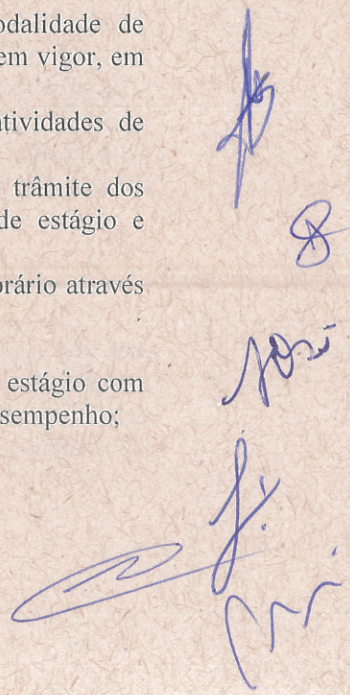 odalidade de
em vigor, em
atividades de
trâmite dos
de estágio e
orário através
estágio com
sempenho;